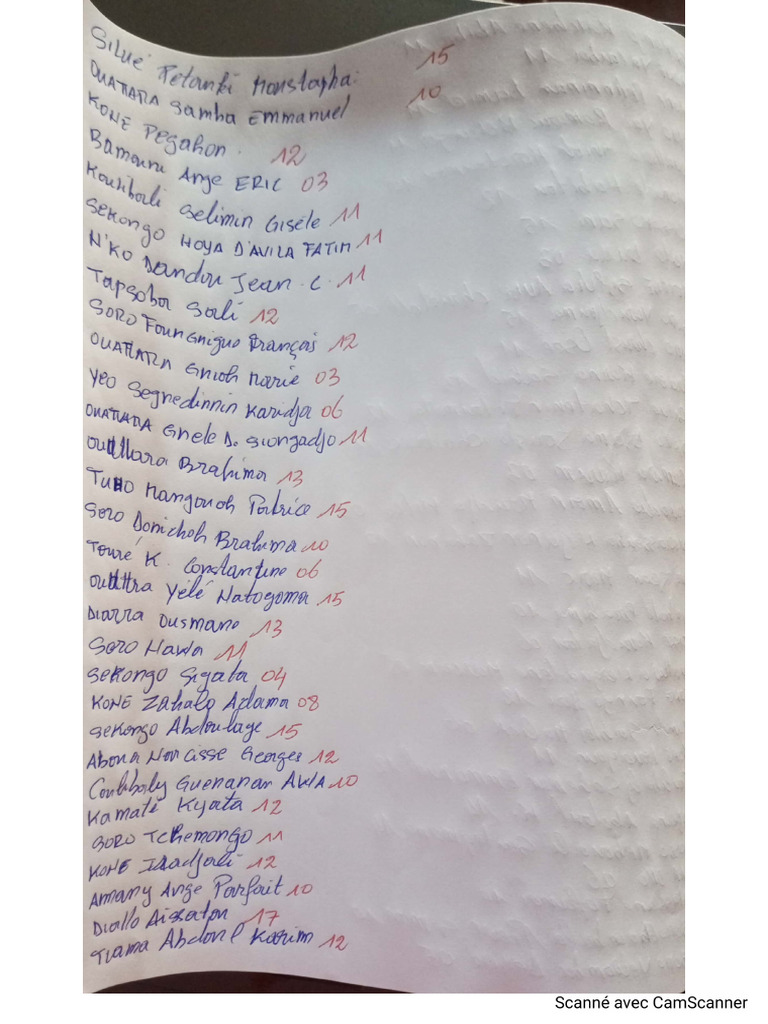 Silué Petanki Moustapha 15
OUATTARA Samba Emmanuel 10
KONE Pegahon. 12
Bamouni Ange ERIC 03
Koulibali Selimin Gisèle 11
SEKONGO HOYA D'AVILA FATIM 11
N'KO Dandou Jean. C. 11
Tapsoba Sali 12
SORO Foungniguo François 12
OUATTARA Gnioh Marie 03
Yeo Segnedinnin Karidja 06
OUATTARA Gnele D. Siongadjo 11
Ouattara Brahima 13
Tuho Mangouoh Patrice 15
Soro Donichoh Brahima 10
Touré K. Constantine 06
Ouattra Yélé Natogoma 15
Diarra Ousmane 13
Soro Hawa 11
Sekongo Sigata 04
KONE Zahalo Adama 08
Sekongo Abdoulaye 15
Aboua Narcisse Georges 12
Coulibaly Guenanan AWA 10
Kamaté Kyata 12
SORO Tchemongo 11
KONE 12
Amany Ange Parfait 10
Diallo Aissatou 17
Tiama Abdoul Karim 12
Scanné avec CamScanner